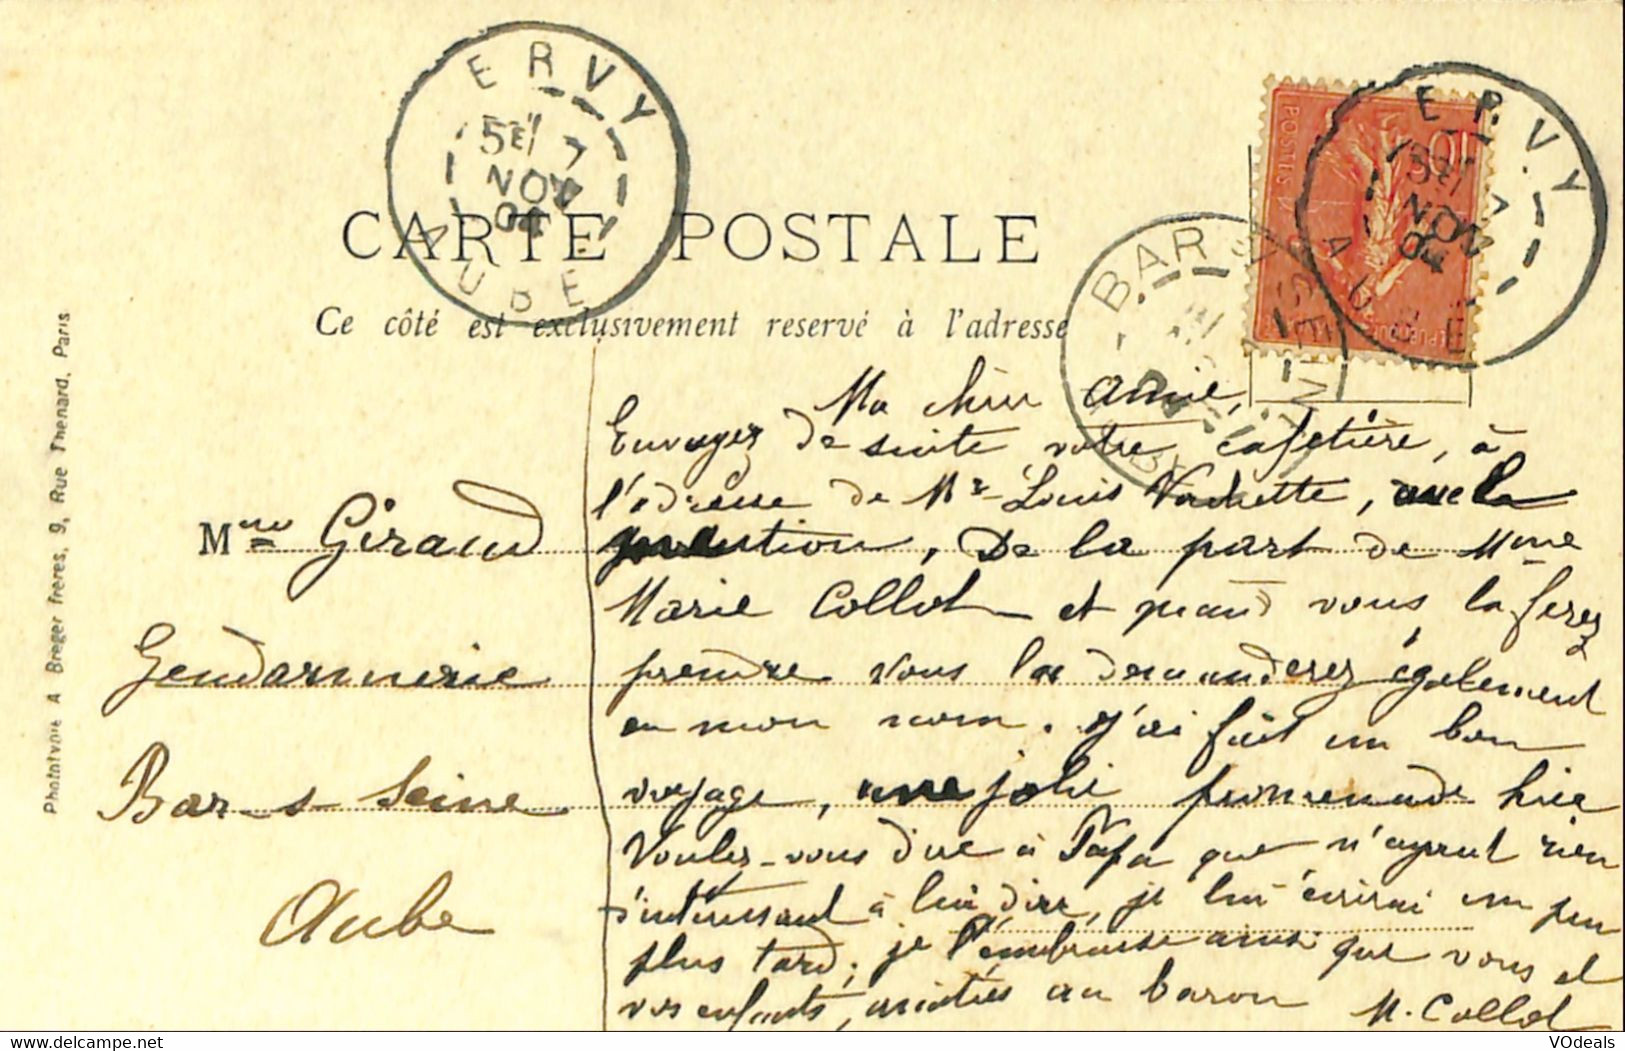 ERVY
5E
7
NOV
04
AUBE
ERVY
5E
7
NOV
04
AUBE
10
POSTES
BAR S SEINE
CARTE POSTALE
Ce côté est exclusivement reservé à l'adresse
Phototypie A Breger frères, 9, Rue Thenard, Paris
Mme Giraud
Gendarmerie
Bar s Seine
Aube
Ma chère amie,
Envoyez de suite votre cafetière, à
l'adresse de Mr Louis Vachette, avec la
mention, De la part de Mme
Marie Collot et quand vous la ferez
prendre vous la demanderez également
en mon nom. J'ai fait un bon
voyage, une jolie promenade hier
Voulez-vous dire à Papa que n'ayant rien
d'intéressant à lui dire, je lui écrirai un peu
plus tard; je l'embrasse ainsi que vous et
vos enfants, amitiés au baron
M. Collot
VOdeals
www.delcampe.net